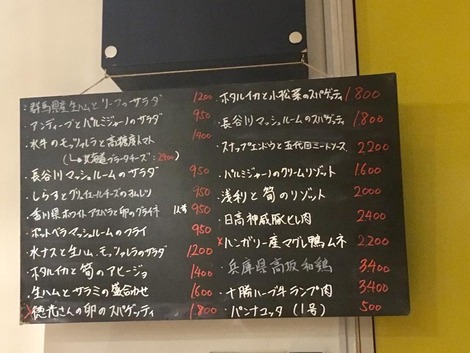 ・群馬県産生ハムとリーフのサラダ 1200
・アンディーブとパルミジャーノのサラダ 950
・水牛のモッツァレラと高糖度トマト 1400
(↳北海道ブラータチーズ→2400)
・長谷川マッシュルームのサラダ 950
・しらすとグリュイエールチーズのオムレツ 950
・香川県ホワイトアスパラと卵のグラチネ 1本 950
・ポットベラマッシュルームのフライ 950
・水ナスと生ハム、モッツァレラのサラダ 1200
・ホタルイカと筍のアヒージョ 1400
・生ハムとサラミの盛合わせ 1600
・徳光さんの卵のスパゲッティ 1800
・ホタルイカと小松菜のスパゲッティ 1800
・長谷川マッシュルームのスパゲッティ 1800
・スナップエンドウと五代目ミートソース 2200
・パルミジャーノのクリームリゾット 1600
・浅利と筍のリゾット 2000
・日高神威豚ヒレ肉 2400
・ハンガリー産マグレ鴨ムネ 2200
・兵庫県高坂和鶏 3400
・十勝ハーブ牛ランプ肉 3400
・パンナコッタ(1号) 500